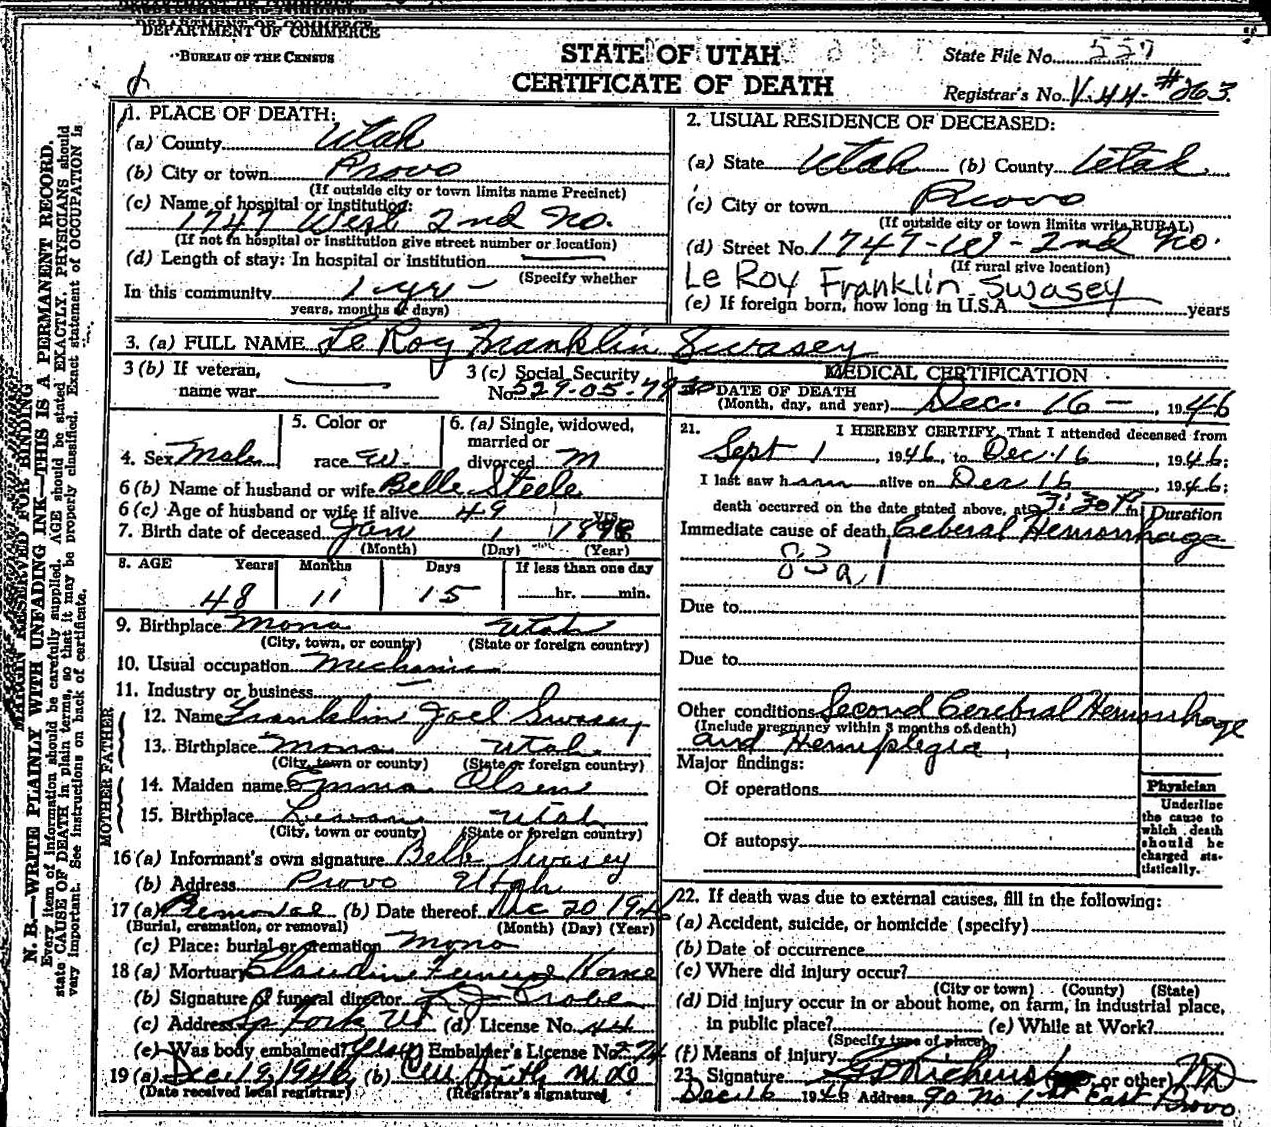 DEPARTMENT OF COMMERCE
DEPARTMENT OF COMMERCE
BUREAU OF THE CENSUS
STATE OF UTAH
CERTIFICATE OF DEATH
State File No. 557
Registrar's No. V-44-#263
MARGIN RESERVED FOR BINDING
N. B.—WRITE PLAINLY WITH UNFADING INK—THIS IS A PERMANENT RECORD.
Every item of information should be carefully supplied. AGE should be stated EXACTLY. PHYSICIANS should
state CAUSE OF DEATH in plain terms, so that it may be properly classified. Exact statement of OCCUPATION is
very important. See instructions on back of certificate.
1. PLACE OF DEATH:
(a) County Utah
(b) City or town Provo
(If outside city or town limits name Precinct)
(c) Name of hospital or institution:
1747 West 2nd No.
(If not in hospital or institution give street number or location)
(d) Length of stay: In hospital or institution
(Specify whether
In this community 1 yr
years, months or days)
2. USUAL RESIDENCE OF DECEASED:
(a) State Utah (b) County Utah
(c) City or town Provo
(If outside city or town limits write RURAL)
(d) Street No. 1747-W-2nd No.
(If rural give location)
Le Roy Franklin Swasey
(e) If foreign born, how long in U.S.A. years
3. (a) FULL NAME Le Roy Franklin Swasey
3 (b) If veteran,
name war
3 (c) Social Security
No. 529-05-79
4. Sex Male
5. Color or
race W.
6. (a) Single, widowed,
married or
divorced M
6 (b) Name of husband or wife Belle Steele
6 (c) Age of husband or wife if alive 49 yrs.
7. Birth date of deceased Jan 1 1898
(Month) (Day) (Year)
8. AGE Years Months Days If less than one day
48 11 15 hr. min.
9. Birthplace Mona Utah
(City, town, or county) (State or foreign country)
10. Usual occupation Mechanic
11. Industry or business
FATHER
12. Name Franklin Joel Swasey
13. Birthplace Mona Utah
(City, town or county) (State or foreign country)
MOTHER
14. Maiden name Emma Olsen
15. Birthplace Levan Utah
(City, town or county) (State or foreign country)
16 (a) Informant's own signature Belle Swasey
(b) Address Provo Utah
17 (a) Removal (b) Date thereof Dec 20 1946
(Burial, cremation, or removal) (Month) (Day) (Year)
(c) Place: burial or cremation Mona
18 (a) Mortuary Claudin Funeral Home
(b) Signature of funeral director
(c) Address Sp Fork Ut (d) License No. 44
(e) Was body embalmed? yes Embalmer's License No. 274
19 (a) Dec 19 1946 (b) Smith M D
(Date received local registrar) (Registrar's signature)
MEDICAL CERTIFICATION
20. DATE OF DEATH
(Month, day, and year) Dec. 16 — , 1946
21. I HEREBY CERTIFY, That I attended deceased from
Sept 1 , 1946, to Dec 16 , 1946;
I last saw him alive on Dec 16 , 1946;
death occurred on the date stated above, at 3:30 P m
Duration
Immediate cause of death Ceberal Hemorrhage
83 1
83a1
Due to
Due to
Other conditions Second Cerebral Hemorrhage
(Include pregnancy within 3 months of death)
and Hemiplegia,
Major findings:
Of operations
Of autopsy
Physician
Underline
the cause to
which death
should be
charged sta-
tistically.
22. If death was due to external causes, fill in the following:
(a) Accident, suicide, or homicide (specify)
(b) Date of occurrence
(c) Where did injury occur?
(City or town) (County) (State)
(d) Did injury occur in or about home, on farm, in industrial place,
in public place? (e) While at Work?
(Specify type of place)
(f) Means of injury
23. Signature or other) MD
Dec 16 1946 Address 90 No 1st East Provo